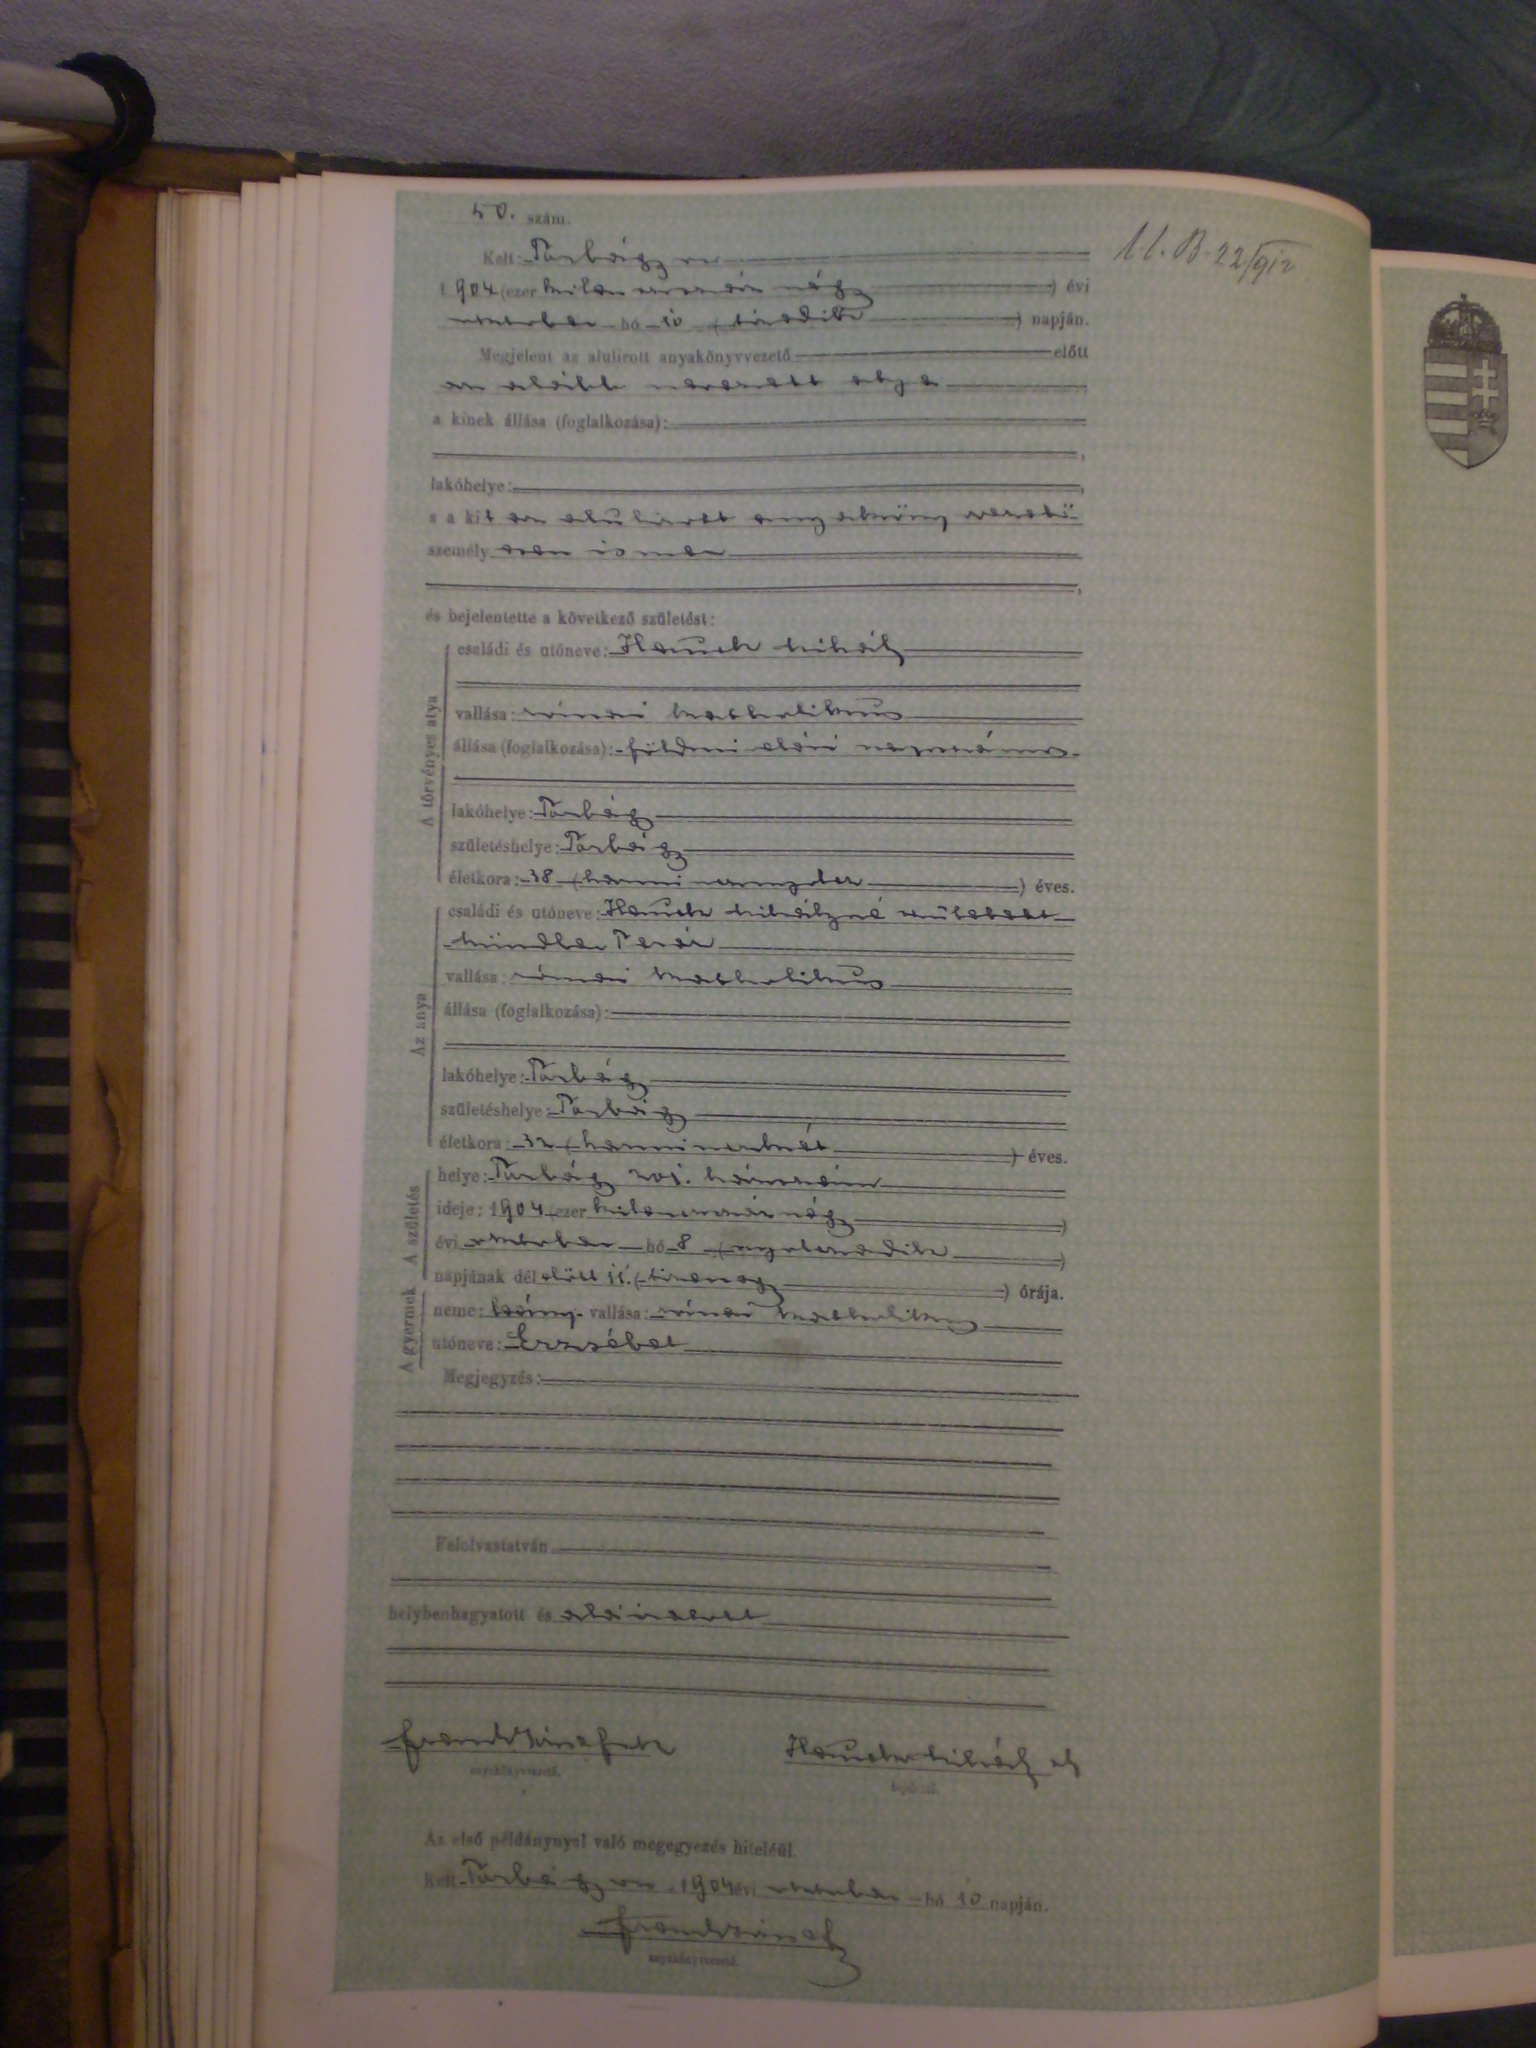 50. szám.
Ú. B. 22/912
Kelt: Torbágyon
1904 (ezer kilenczszáz négy) évi
október hó 10 (tizedik) napján.
Megjelent az alulírott anyakönyvvezető előtt
az alább nevezett atya
a kinek állása (foglalkozása):
lakóhelye:
s a kit az alulírott anyakönyvvezető
személyesen ismer
és bejelentette a következő születést:
A törvényes atya
családi és utóneve: Hauck Mihály
vallása: római katholikus
állása (foglalkozása): földmívelési napszámos
lakóhelye: Torbágy
születéshelye: Torbágy
életkora: 38 (harmincznyolcz) éves.
Az anya
családi és utóneve: Hauck Mihályné született
Teréz
vallása: római katholikus
állása (foglalkozása):
lakóhelye: Torbágy
születéshelye: Torbágy
életkora: 32 (harminczkét) éves.
A születés
helye: Torbágy 201. házszám
ideje: 1904 (ezer kilenczszáz négy)
évi október hó 8 (nyolczadik)
napjának délelőtt 11 (tizenegy) órája.
A gyermek
neme: leány vallása: római katholikus
utóneve: Erzsébet
Megjegyzés:
Felolvastatván
helybenhagyatott és aláíratott
anyakönyvvezető.
Hauck Mihály
bejelentő.
Az első példánynyal való megegyezés hiteléül.
Kelt Torbágyon 1904 évi október hó 10 napján.
anyakönyvvezető.